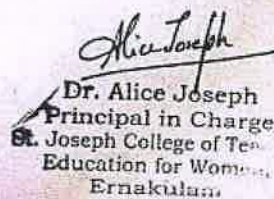 Alice Joseph
Dr. Alice Joseph
Principal in Charge
St. Joseph College of
Education for Women,
Ernakulam